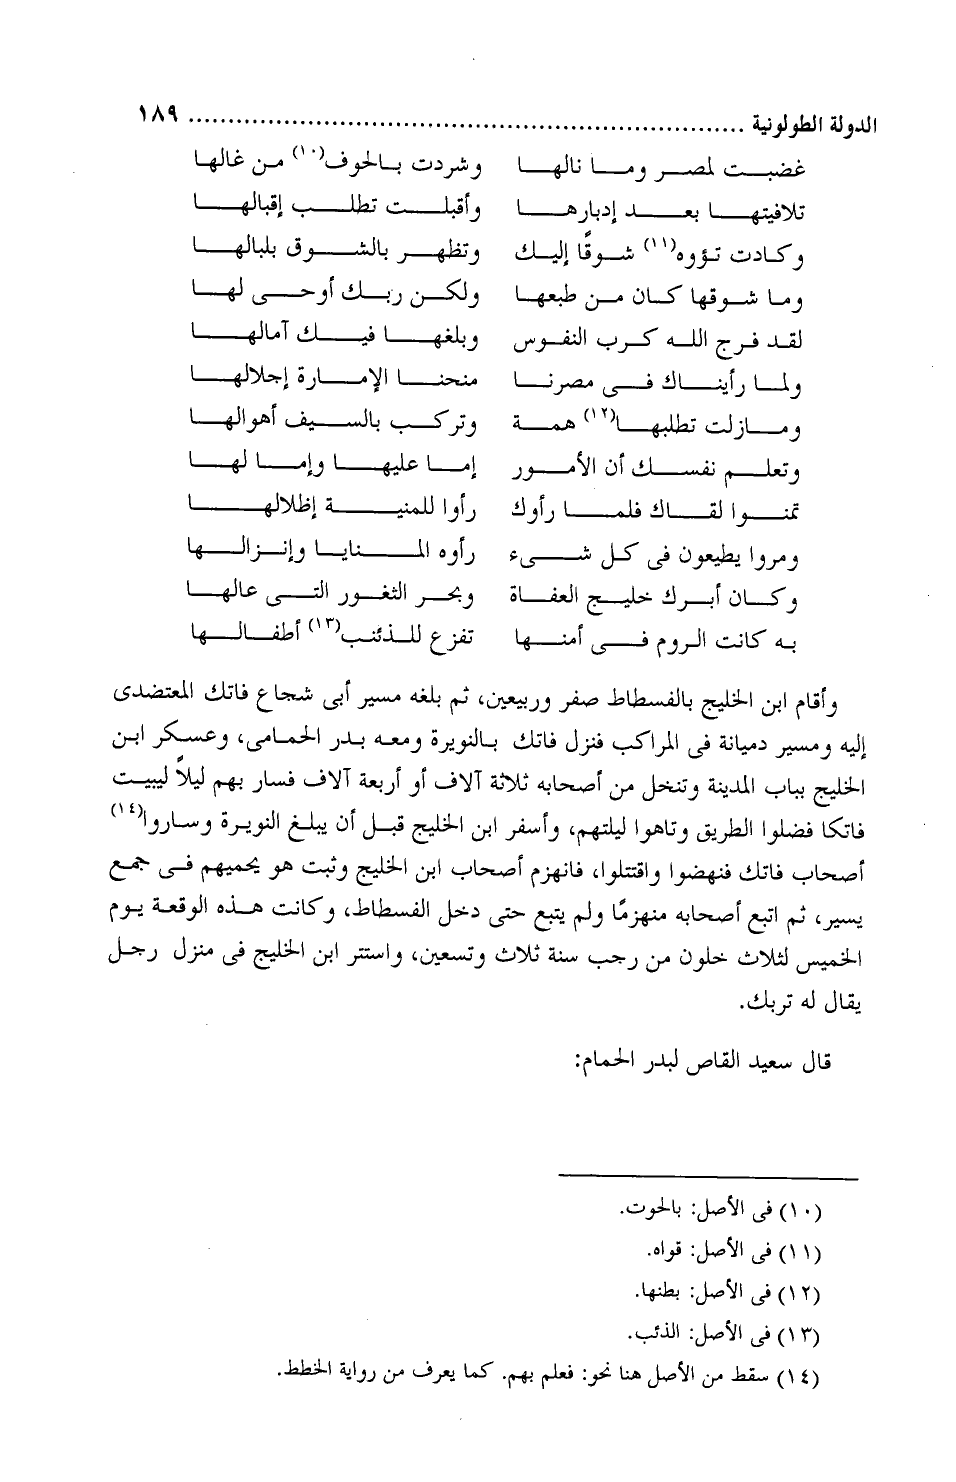 الدولة الطولونية ........................................................................ ١٨٩
غضبت لمصر وما نالها وشردت بالخوف(١٠) من غالها
تلافيتها بعد إدبارها وأقبلت تطلب إقبالها
وكادت تؤوه(١١) شوقًا إليك وتظهر بالشوق بلبالها
وما شوقها كان من طبعها ولكن ربك أوحى لها
لقد فرج الله كرب النفوس وبلغها فيك آمالها
ولما رأيناك فى مصرنا منحنا الإمارة إجلالها
ومازلت تطلبها(١٢) همة وتركب بالسيف أهوالها
وتعلم نفسك أن الأمور إما عليها وإما لها
تمنوا لقاك فلما رأوك رأوا للمنية إظلالها
ومروا يطيعون فى كل شىء رأوه المنايا وإنزالها
وكان أبرك خليج العفاة وبحر الثغور التى عالها
به كانت الروم فى أمنها تفزع للذئب(١٣) أطفالها
وأقام ابن الخليج بالفسطاط صفر وربيعين، ثم بلغه مسير أبى شجاع فاتك المعتضدى
إليه ومسير دميانة فى المراكب فنزل فاتك بالنويرة ومعه بدر الحمامى، وعسكر ابن
الخليج بباب المدينة وتنخل من أصحابه ثلاثة آلاف أو أربعة آلاف فسار بهم ليلاً ليبيت
فاتكا فضلوا الطريق وتاهوا ليلتهم، وأسفر ابن الخليج قبل أن يبلغ النويرة وساروا(١٤)
أصحاب فاتك فنهضوا واقتتلوا، فانهزم أصحاب ابن الخليج وثبت هو يحميهم فى جمع
يسير، ثم اتبع أصحابه منهزمًا ولم يتبع حتى دخل الفسطاط، وكانت هذه الوقعة يوم
الخميس لثلاث خلون من رجب سنة ثلاث وتسعين، واستتر ابن الخليج فى منزل رجل
يقال له تربك.
قال سعيد القاص لبدر الحمام:
(١٠) فى الأصل: بالحوت.
(١١) فى الأصل: قواه.
(١٢) فى الأصل: بطنها.
(١٣) فى الأصل: الذئب.
(١٤) سقط من الأصل هنا نحو: فعلم بهم. كما يعرف من رواية الخطط.